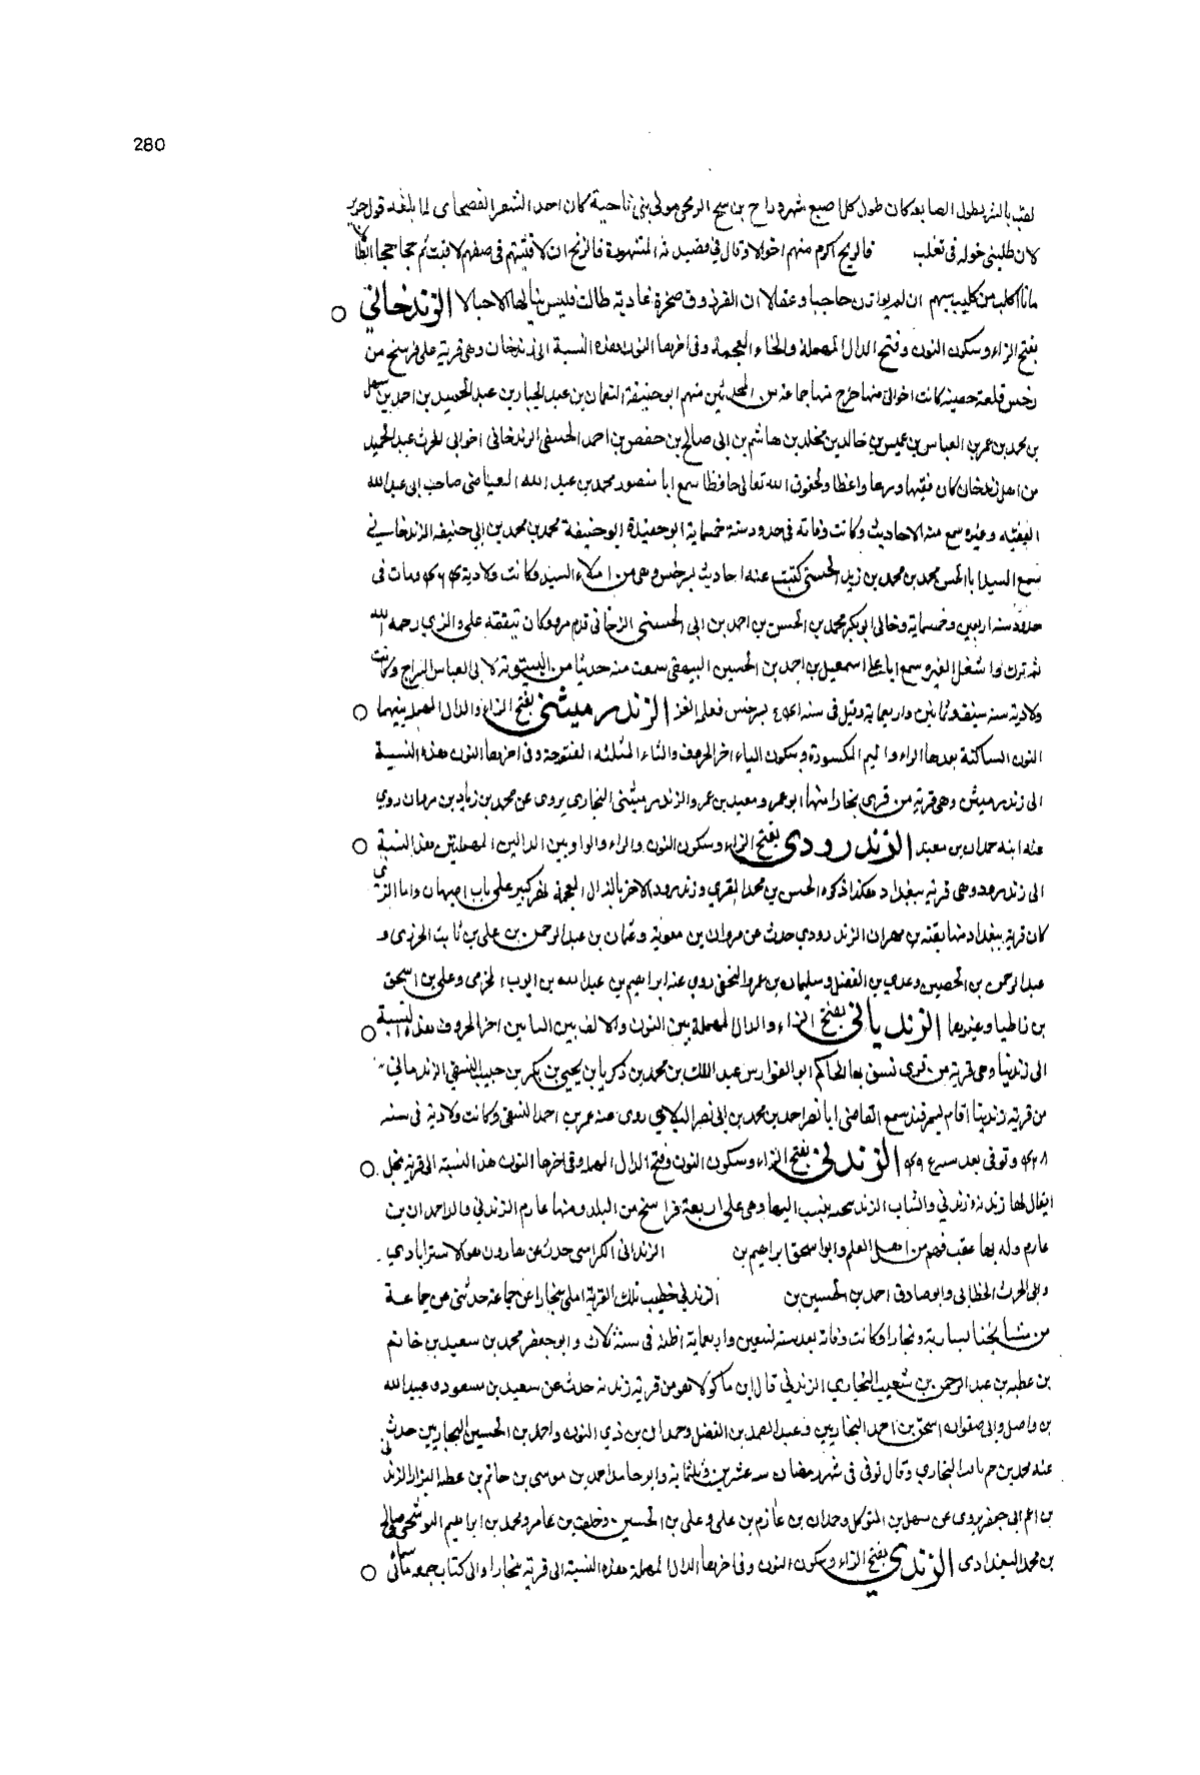 280
لقب بالنذر بطول اصابعه كان طول كل اصبع شبر و رباح بن سنيح الزنجى مولى بنى ناحية كان احد الشعرا الفصحا لما بلغه قول جرير
لا تطلبن خوله فى تغلب فالزنج اكرم منهم اخوالا وقال فى قصيدته المشهورة فالزنج ان لاقيتهم فى صفهم لاقيت ثم جحا جحا ابطالا
ان الفرزدق صخرة عادية طالت فليس ينالها الاجبالا الزندخانى
بفتح الزاء وسكون النون وفتح الدال المهملة والخاء المعجمة وفى اخرها النون هذه النسبة الى زندخان وهى قرية على فرسخ من
سرخس قلعة حصينة كانت اخوالى منها خرج منها جماعة من المحدثين منهم ابو حنيفة النعمان بن عبد الجبار بن عبد الحميد بن احمد بن
بن محمد بن عمر بن العباس بن عيسى بن خالد بن مخلد بن هاشم بن ابى صالح بن حفص بن احمد الحنفى الزندخانى اخو ابى الحرث عبد الحميد
من اهل زندخان كان فقيها ورعا واعظا ولحقوق الله تعالى حافظا سمع ابا منصور محمد بن عبد الله العياضى صاحب ابى عبد الله
الفقيه وغيره سمع منه الاحاديث وكانت وفاته فى حدود سنة خمسماية ابو حنيفة محمد بن محمد بن ابى حنيفة الزندخانى
سمع السيد ابا الحسن محمد بن محمد بن زيد الحسنى كتبت عنه احاديث بسرخس وهى من املاء السيد وكانت ولادته ومات فى
حدود سنة اربعين وخمسماية وخالى ابو بكر محمد بن الحسن بن احمد بن ابى الحسنى الزخانى قدم مرو وكان تفقه على والدى رحمه الله
ثم ترك واشغل الغير وسمع ابا على اسمعيل بن احمد بن الحسين البيهقى سمعت منه حديثا من لابى العباس السراج وكانت
ولادته سنة نيف وثمانين واربعماية وقتل فى سنة بسرخس فعله الغز الزندرميثنى بفتح الزاء والدال المهملة بينهما
النون الساكنة بعدها الراء والميم المكسورة وسكون الياء اخر الحروف والثاء المثلثه المفتوحة وفى اخرها النون هذه النسبة
الى زندرميثن وهى قرية من قرى بخارا منها ابو عمرو معبد بن عمرو الزندرميثنى البخارى يروى عن محمد بن زياد بن مروان روى
عنه ابنه حمدان بن معبد الزندرودى بفتح الزاء وسكون النون والراء والواو بين الدالين المهملتين هذه النسبة
الى زندرود وهى قرية ببغداد هكذا ذكره الحسن بن محمد المقرى وزندرود الاخر بالذال المعجمة نهر كبير على باب اصبهان واما الذى
كان قرية ببغداد منها بقية بن مهران الزندرودى حدث عن مروان بن معوية وعثمان بن عبد الرحمن بن على بن ثابت الجزرى و
عبد الرحمن بن الحصين وعدى بن الفضل وسليمان بن عمرو النخعى روى عنه ابراهيم بن عبد الله بن ايوب المخرمى وعلى بن اسحق
بن ناطيا وغيرهما الزنديانى بفتح الزاء والدال المهملة بين النون والالف بين الياين اخر الحروف هذه النسبة
الى زنديا وهى قرية من قرى نسف بها الحاكم ابو الفوارس عبد الملك بن محمد بن زكريا بن يحيى بن بكر بن حبيب النسفى
من قرية زندينا اقام بسمرقند سمع القاضى ابا نصر احمد بن محمد بن ابى نصر روى عنه عمر بن احمد النسفى وكانت ولادته فى سنة
وتوفى بعد الزندنى بفتح الزاء وسكون النون وفتح الدال المهملة وفى اخرها النون هذه النسبة الى قرية
يقال لها زندنه زندنى والثياب الزندنيجية ينسب اليها وهى على اربعة فراسخ من البلد ومنها عارم الزندنى والد احمد بن
عارم وله بها عقب فهم من اهل العلم وابو اسحق ابراهيم بن الزندانى الكرابيسى حدث عن هارون هو الاستراباذى
وابى الحرث الخطابى وابو صادق احمد بن الحسين بن الزندنى خطيب تلك القرية املى ببخارا عن جماعة حدثنى عن جماعة
من مشايخنا وبخارا وكانت وفاته بعد سنة تسعين واربعماية اظنه فى سنة ثلاث وابو جعفر محمد بن سعيد بن خاتم
بن عطيه بن عبد الرحمن بن شعيب البخارى الزندنى قال ابن ماكولا هو من قرية زندنه حدث عن سعيد بن مسعود وعبيد الله
بن واصل وابى صفوان اسحق بن احمد البخاريين وعبد الصمد بن الفضل وحمدان بن ذى النون واحمد بن الحسين البخاريين حدث
عنه محمد بن البخارى وقال توفى فى شهر رمضان سنة عشرين وثلثماية وابو حامد احمد بن موسى بن حاتم بن عطية البزار الزندنى
بن اعم ابى جعفر يروى عن سهل بن المتوكل وحمدان بن عارم بن على وعلى بن الحسين وخلف بن عامر ومحمد بن ابراهيم البوشنجى وصالح
بن محمد البغدادى الزندى بفتح الزاء وسكون النون وفى اخرها الدال المهملة هذه النسبة الى قرية ببخارا والى كتاب جمعه مانى